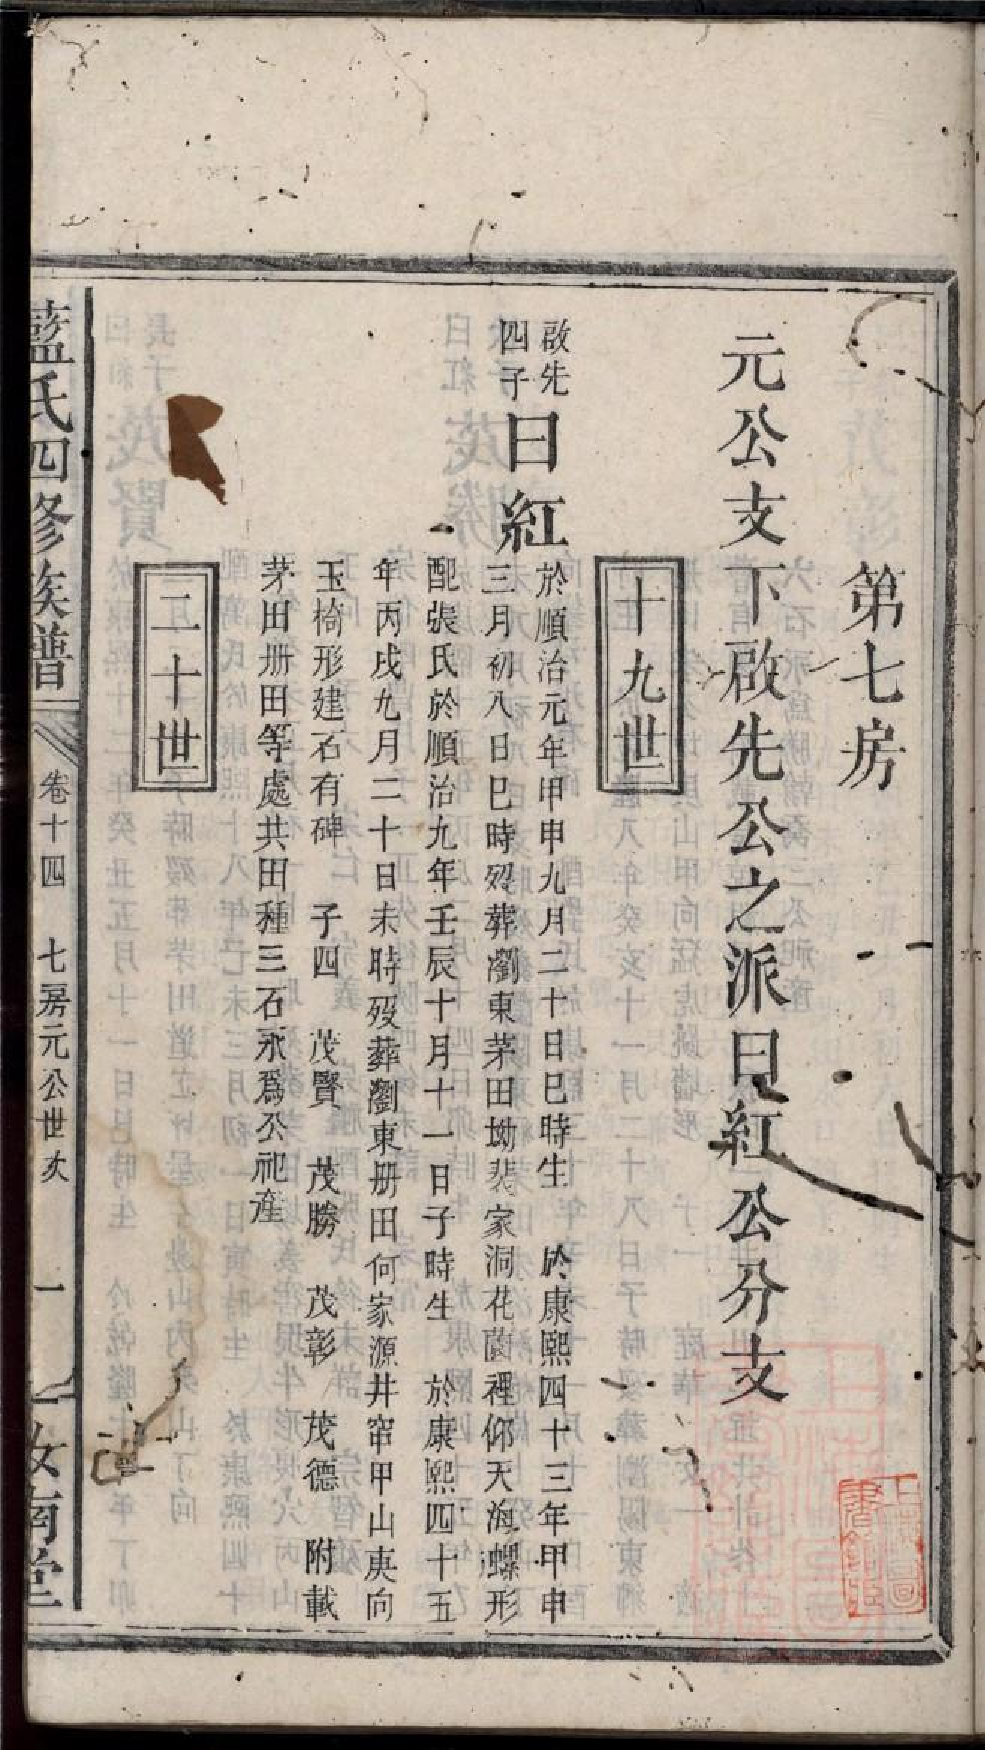 第七房
元公支下啟先公之派曰紅公分支
十九世
啟先
四子
曰紅
於順治元年甲申九月二十日巳時生 於康熙四十三年甲申
三月初八日巳時歿葬瀏東茅田坳裴家洞花園裡仰天海螺形
配張氏於順治九年壬辰十月十一日子時生 於康熙四十五
年丙戌九月二十日未時歿葬瀏東册田何家源井窂甲山庚向
玉椅形建石有碑 子四 茂賢 茂勝 茂彰 茂德 附載
茅田册田等處共田種三石永爲公祀產
二十世
藍氏四修族譜 卷十四 七房元公世次 一 汝南堂